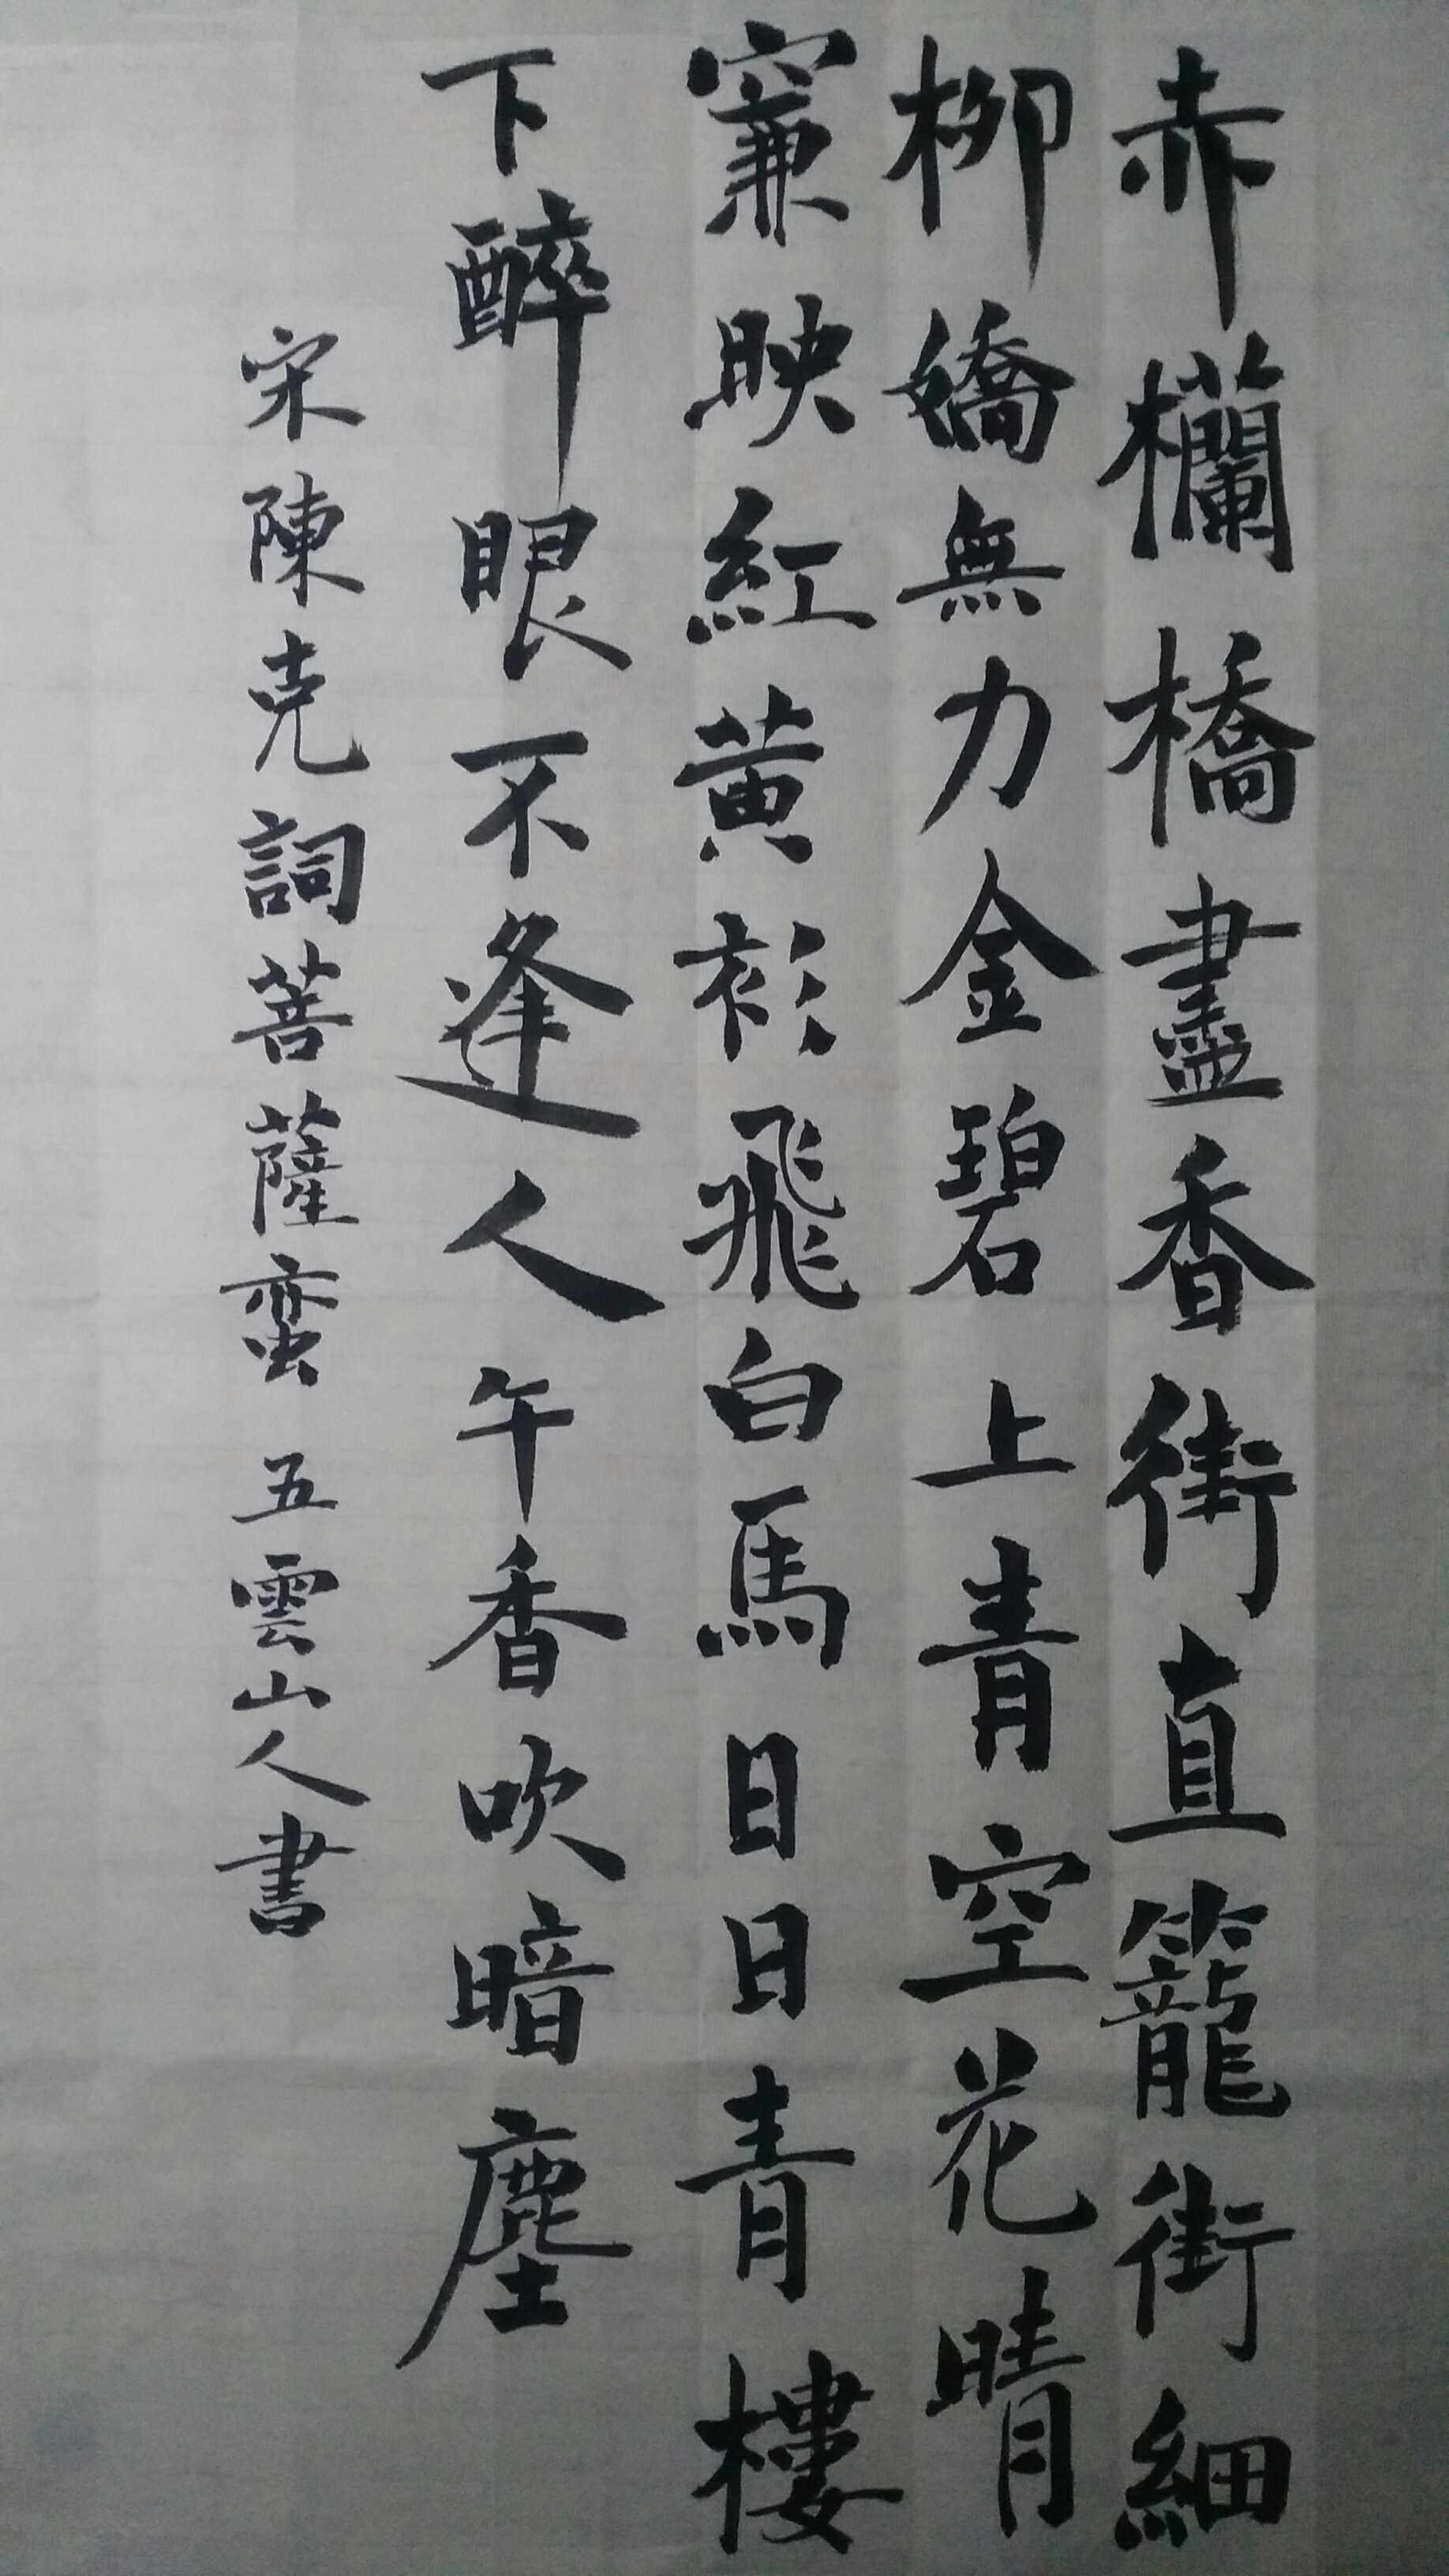 赤欄橋盡香街直籠街細
柳嬌無力金碧上青空花晴
簾映紅黄衫飛白馬日日青樓
下醉眼不逢人午香吹暗塵
宋陳克詞菩薩蛮五雲山人書